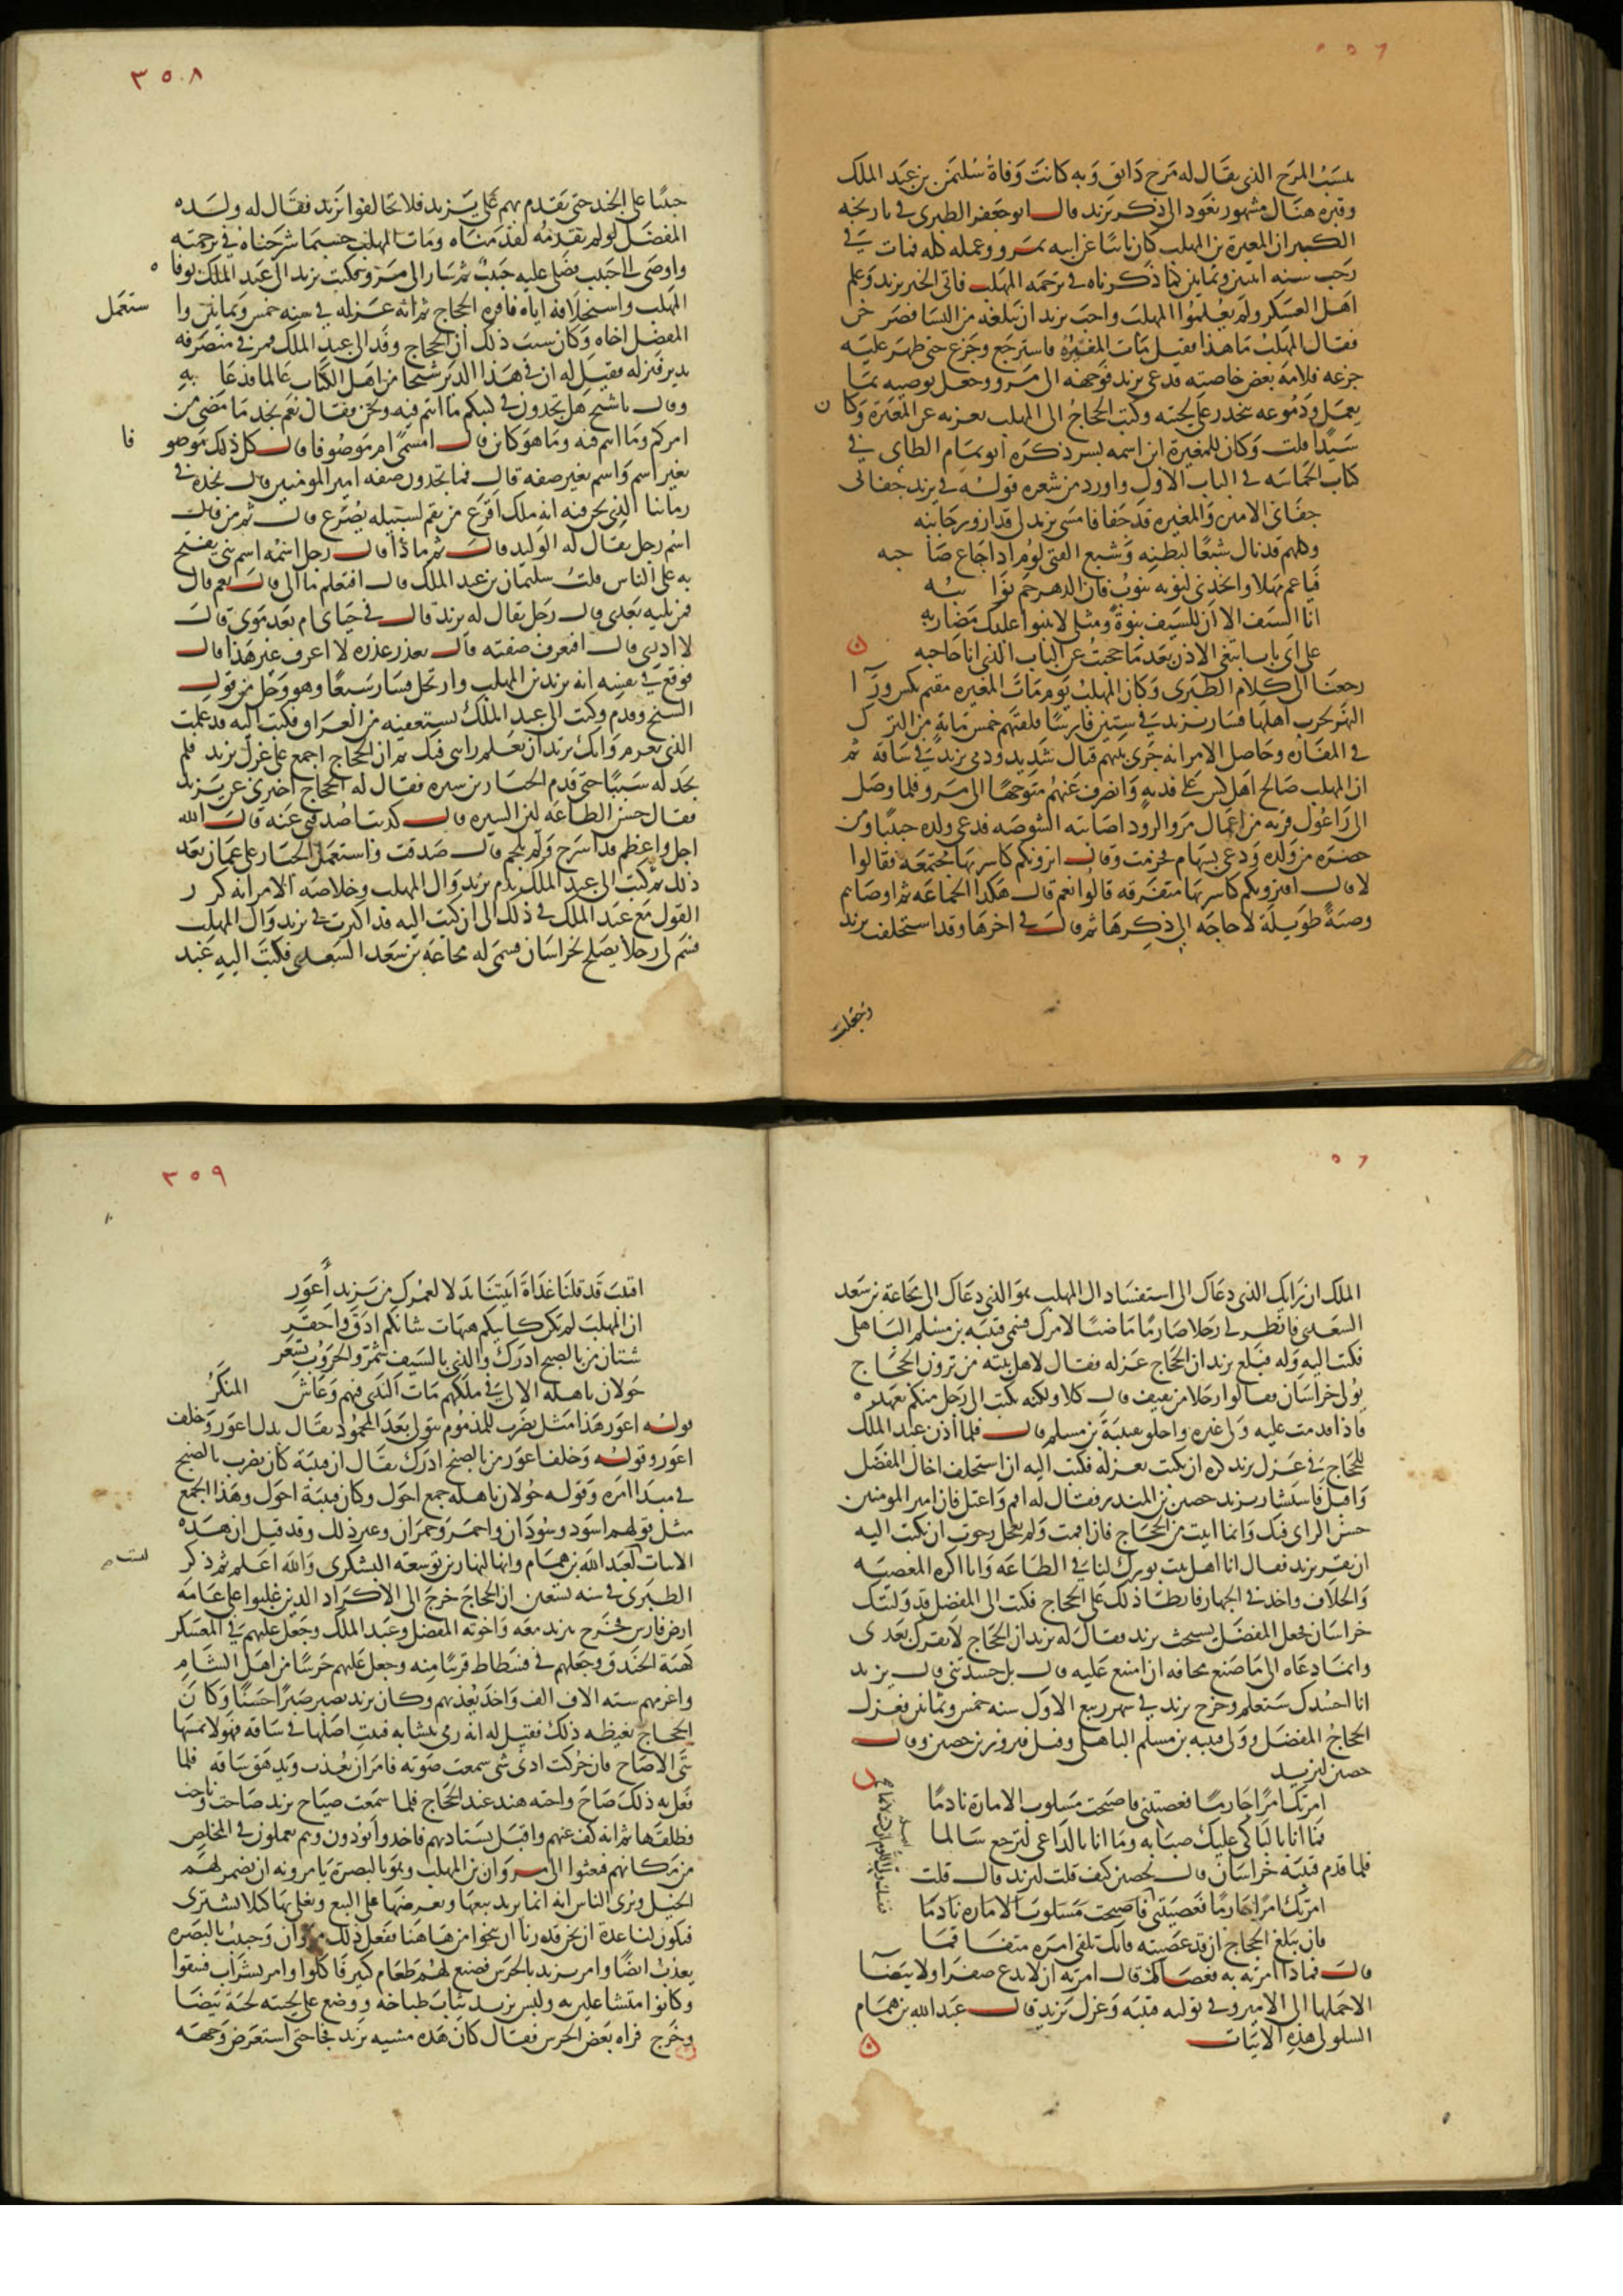 ينسب المرج الذي يقال له مرج دابق وبه كانت وفاة سليمن بن عبد الملك
وقبره هناك مشهور نعود الى ذكر يزيد قال ابو جعفر الطبري في تاريخه
الكبير ان المغيرة بن المهلب كان نائبا عن ابيه بمرو وعمله كله فمات في
رجب سنه اثنين وثمانين كما ذكرناه في ترجمه المهلب فاتى الخبر يزيد وعلم
اهل العسكر ولم يعلموا المهلب واحب يزيد ان يبلغه من النسا فصرخن
فقال المهلب ما هذا فقيل مات المغيره فاسترجع وجزع حتى ظهر عليه
جزعه فلامه بعض خاصته فدعى يزيد فوجهه الى مرو وجعل يوصيه بما
يعمل ودموعه تنحدر على لحيته وكتب الحجاج الى المهلب يعزيه عن المغيرة وكان
سيدا قلت وكان للمغيرة ابن اسمه بسر ذكره ابو تمام الطاى في
كتاب الحماسه في الباب الاول واورد من شعره قوله في يزيد جفانى
جفانى الامير والمغيره قد جفا فامسى يزيد لى قد ازور جانبه
وكلهم قد نال شبعا لبطنه وشبع الفتى لوم اذا جاع صاحبه
فيا عم مهلا واتخذنى لنوبه تنوب فان الدهر جم نوائبه
انا السيف الا ان للسيف نبوة ومثلى لا تنبوا عليك مضاربه
على اى باب ابتغى الاذن بعد ما حجبت عن الباب الذى انا حاجبه
رجعنا الى كلام الطبرى وكان المهلب يوم مات المغيره مقيم بكس ورآ
النهر لحرب اهلها فسار يزيد في ستين فارسا فلقيهم خمس مايه من الترك
في المفازه وحاصل الامر انه جرى بينهم قتال شديد ورمى يزيد في ساقه ثم
ان المهلب صالح اهل كس على فديه وانصرف عنهم متوجها الى مرو فلما وصل
الى زاغول قريه من اعمال مرو الرود اصابته الشوصه فدعى ولده حبيبا ومن
حضره من ولده ودعى بسهام فحزمت وقال اترونكم كاسريها مجتمعه فقالوا
لا قال افترونكم كاسريها متفرقه قالوا نعم قال هكذا الجماعه ثم اوصاهم
وصية طويلة لا حاجه الى ذكرها ثم قال في اخرها وقد استخلفت يزيد
وجعلت
٣٥٨
حبيبا على الجند حتى يقدم بهم على يزيد فلا تخالفوا يزيد فقال له ولده
المفضل لو لم تقدمه لقدمناه ومات المهلب حسبما شرحناه في ترجمته
واوصى الى حبيب فصلى عليه حبيب ثم سار الى مرو وكتب يزيد الى عبد الملك بوفاه
المهلب واستخلافه اياه فاقره الحجاج ثم انه عزله في سنه خمس وثمانين واستعمل
المفضل اخاه وكان سبب ذلك ان الحجاج وفد الى عبد الملك فمر في منصرفه
بدير فنزله فقيل له ان في هذا الدير شيخا من اهل الكتاب عالما فدعا به
وقال يا شيخ هل تجدون في كتبكم ما انتم فيه ونحن فقال نعم نجد ما مضى من
امركم وما انتم فيه وما هو كاين قال امسمى ام موصوفا قال كل ذلك موصوفا
بغير اسم واسم بغير صفه قال فما تجدون صفه امير المومنين قال نجده في
زماننا الذى نحن فيه انه ملك اقرع من يقم لسبيله يصرع قال ثم من قال
اسم رجل يقال له الوليد قال ثم ماذا قال رجل اسمه اسم نبى يفتح
به على الناس قلت سليمان بن عبد الملك قال افتعلم ما الى قال نعم قال
فمن يليه بعدى قال رجل يقال له يزيد قال في حياتى ام بعد موتى قال
لا ادرى قال افتعرف صفته قال يغدر غدره لا اعرف غير هذا قال
فوقع في نفسه انه يزيد بن المهلب وارتحل فسار سبعا وهو وجل من قول
الشيخ وقدم وكتب الى عبد الملك يستعفيه من العراق فكتب اليه قد علمت
الذى تعزم وانك تريد ان تعلم رايى فيك ثم ان الحجاج اجمع على عزل يزيد فلم
يجد له سببا حتى قدم الخيار بن سبره فقال له الحجاج اخبرنى عن يزيد
فقال حسن الطاعه لين السيره قال كذبت اصدقنى عنه قال الله
اجل واعظم قد اسرج ولم يلجم قال صدقت واستعمل الخيار على عمان بعد
ذلك ثم كتب الى عبد الملك يذم يزيد وآل المهلب وخلاصه الامر انه كرر
القول مع عبد الملك في ذلك الى ان كتب اليه قد اكثرت في يزيد وآل المهلب
فسم لى رجلا يصلح لخراسان فسمى له مجاعة بن سعد السعدى فكتب اليه عبد
الملك ان رايك الذى دعاك الى استفساد ال المهلب هو الذى دعاك الى مجاعة بن سعد
السعدى فانظر لى رجلا صارما ماضيا لامرك فسمى قتيبه بن مسلم الباهلى
فكتب اليه وله فبلغ يزيد ان الحجاج عزله فقال لاهل بيته من ترون الحجاج
يولى خراسان فقالوا رجلا من ثقيف قال كلا ولكنه يكتب الى رجل منكم بعهده
فاذا قدمت عليه ولى غيره واخلق بقتيبة بن مسلم قال فلما اذن عبد الملك
للحجاج في عزل يزيد كره ان يكتب بعزله فكتب اليه ان استخلف اخاك المفضل
واقبل فاستشار يزيد حصين بن المنذر فقال له اقم واعتل فان امير المومنين
حسن الراى فيك وانما اتيت من الحجاج فان اقمت ولم تعجل رجوت ان يكتب اليه
ان يقر يزيد فقال انا اهل بيت بورك لنا في الطاعه وانا اكره المعصيه
والخلاف واخذ في الجهاز فابطا ذلك على الحجاج فكتب الى المفضل قد وليتك
خراسان فجعل المفضل يستحث يزيد فقال له يزيد ان الحجاج لا يقرك بعدى
وانما دعاه الى ما صنع مخافه ان امتنع عليه قال بل حسدتنى قال يزيد
انا احسدك ستعلم وخرج يزيد في شهر ربيع الاول سنه خمس وثمانين فعزل
الحجاج المفضل وولى قتيبه بن مسلم الباهلى وقيل فيروز بن حصين وقال
حصين ليزيد
امرتك امرا حازما فعصيتنى فاصبحت مسلوب الامارة نادما
فما انا بالباكى عليك صبابه وما انا بالداعى لترجع سالما
فلما قدم قتيبه خراسان قال لحصين كيف قلت ليزيد قال قلت
امرتك امرا حازما فعصيتنى فاصبحت مسلوب الاماره نادما
فان يبلغ الحجاج ان قد عصيته فانك تلقى امره متفاقما
قال فماذا امرته به فعصاك قال امرته ان لا يدع صفرا ولا بيضآ
الا حملها الى الامير وفي توليه قتيبه وعزل يزيد قال عبد الله بن همام
السلولى هذه الابيات
٣٥٩
اقتيب قد قلنا غداة اتيتنا بدلا لعمرك من يزيد اعور
ان المهلب لم يكن كابيكم هيهات شانكم ادق واحقر
شتان من بالصنج ادرك والذى بالسيف شمر والحروب تسعر
حولان باهله الالى في ملكهم مات الندى فيهم وعاش المنكر
قوله اعور هذا مثل يضرب للمذموم يتولى بعد المحمود يقال بدل اعور وخلف
اعور وقوله وخلف اعور من بالصنج ادرك يقال ان قتيبة كان يضرب بالصنج
في مبدا امره وقوله حولان باهله جمع احول وكان قتيبة احول وهذا الجمع
مثل قولهم اسود وسودان واحمر وحمران وغير ذلك وقد قيل ان هذه
الابيات ليست لعبد الله بن همام وانها لنهار بن توسعه اليشكرى والله اعلم ثم ذكر
الطبرى في سنه تسعين ان الحجاج خرج الى الاكراد الذين غلبوا على عامه
ارض فارس فخرج بيزيد معه واخوته المفضل وعبد الملك وجعل عليهم في المعسكر
كهئة الخندق وجعلهم في فسطاط قريبا منه وجعل عليهم حرسا من اهل الشام
واغرمهم سته الاف الف واخذ يعذبهم وكان يزيد يصبر صبرا حسنا وكان
الحجاج يغيظه ذلك فقيل له انه رمى بنشابه فثبت اصلها في ساقه فهو لا يمسها
شى الا صاح فان حركت ادنى شى سمعت صوته فامر ان يعذب ويدهق ساقه فلما
فعل به ذلك صاح واخته هند عند الحجاج فلما سمعت صياح يزيد صاحت وناحت
فطلقها ثم انه كف عنهم واقبل يستاديهم فاخذوا يودون وهم يعملون في المخلص
من مكانهم فبعثوا الى مروان بن المهلب وهو بالبصرة يامرونه ان يضمر لهم
الخيل ويرى الناس انه انما يريد بيعها ويعرضها على البيع ويغلى بها كلا تشترى
فتكون لنا عدة ان نحن قدرنا ان ننجوا من هاهنا ففعل ذلك مروان وحبيب بالبصره
يعذب ايضا وامر يزيد بالحرس فصنع لهم طعام كثير فاكلوا وامر بشراب فسقوا
وكانوا متشاغلين به ولبس يزيد ثياب طباخه ووضع على لحيته لحية بيضا
وخرج فراه بعض الحرس فقال كان هذه مشيه يزيد فجا حتى استعرض وجهه